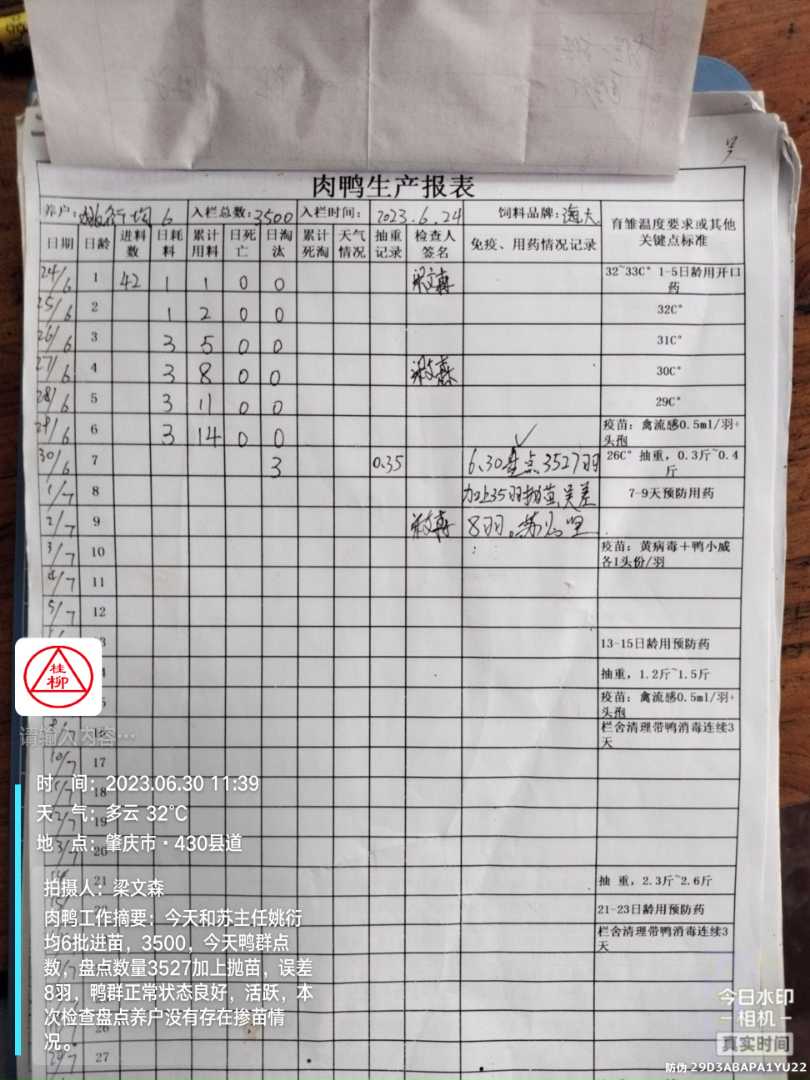 肉鸭生产报表
养户: 姚衍均 6 入栏总数: 3500 入栏时间: 2023.6.24 饲料品牌: 海大 育雏温度要求或其他关键点标准
日期 日龄 进料数 日耗料 累计用料 日死亡 日淘汰 累计死淘 天气情况 抽重记录 检查人签名 免疫、用药情况记录
24/6 1 42 1 1 0 0 梁文森 32~33C° 1-5日龄用开口药
25/6 2 1 2 0 0 32C°
26/6 3 3 5 0 0 31C°
27/6 4 3 8 0 0 梁文森 30C°
28/6 5 3 11 0 0 29C°
29/6 6 3 14 0 0 疫苗: 禽流感0.5ml/羽+头孢
30/6 7 3 0.35 6.30盘点3527羽 26C° 抽重, 0.3斤~0.4斤
1/7 8 加上35羽抛苗,误差 7-9天预防用药
2/7 9 梁文森 8羽。
3/7 10 疫苗: 黄病毒+鸭小威各1头份/羽
4/7 11
5/7 12
3 13-15日龄用预防药
抽重, 1.2斤~1.5斤
5 疫苗: 禽流感0.5ml/羽+头孢
栏舍清理带鸭消毒连续3天
10/7 17
18
19
20
21 抽 重, 2.3斤~2.6斤
21-23日龄用预防药
栏舍清理带鸭消毒连续3天
25
26
27
桂柳
请输入内容…
时 间: 2023.06.30 11:39
天 气: 多云 32℃
地 点: 肇庆市·430县道
拍摄人: 梁文森
肉鸭工作摘要: 今天和苏主任姚衍
均6批进苗, 3500, 今天鸭群点
数, 盘点数量3527加上抛苗, 误差
8羽, 鸭群正常状态良好, 活跃, 本
次检查盘点养户没有存在掺苗情
况。
今日水印
相机
真实时间
防伪 29D3ABAPA1YU22